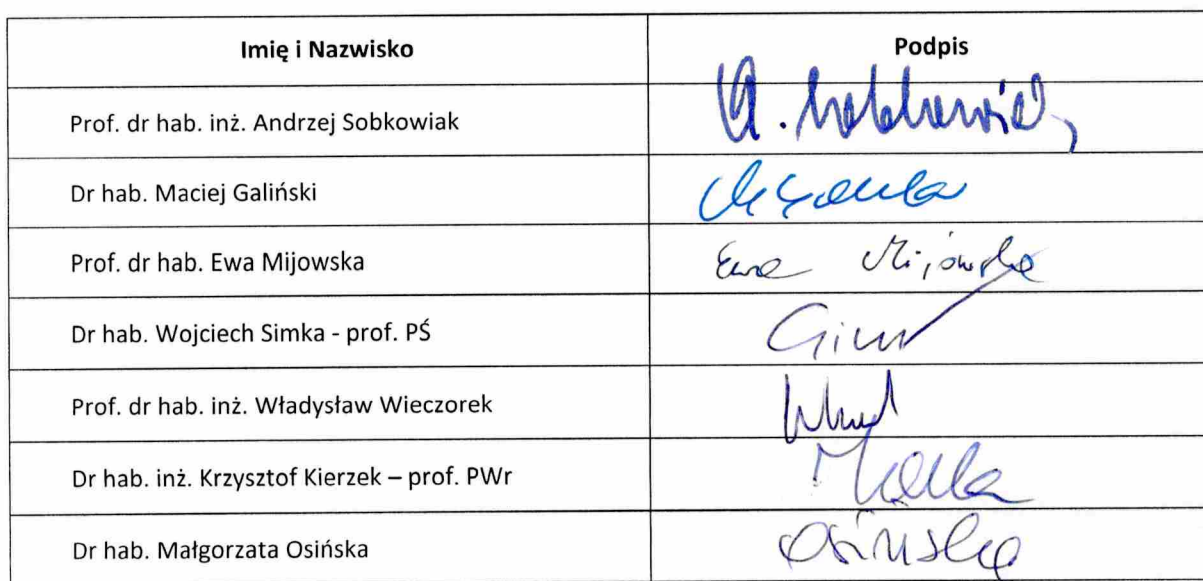 Imię i Nazwisko Podpis
Prof. dr hab. inż. Andrzej Sobkowiak A. Sobkowiak
Dr hab. Maciej Galiński
Prof. dr hab. Ewa Mijowska Ewa Mijowska
Dr hab. Wojciech Simka - prof. PŚ
Prof. dr hab. inż. Władysław Wieczorek
Dr hab. inż. Krzysztof Kierzek – prof. PWr
Dr hab. Małgorzata Osińska Osińska